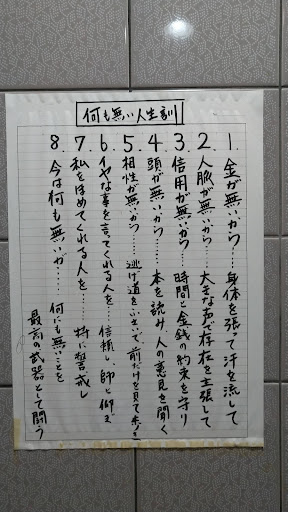 何も無い人生訓
1. 金が無いから……身体を張って汗を流して
2. 人脈が無いから……大きな声で存在を主張して
3. 信用が無いから……時間と金銭の約束を守り
4. 頭が無いから……本を読み人の意見を聞く
5. 相性が無いから……逃げ道をふさいで、前だけを見て
6. イヤな事を言ってくれる人を…信頼し、師と仰ぎ
7. 私をほめてくれる人を……特に警戒し
8. 今は何も無いが……何にも無いことを
最高の武器として闘う